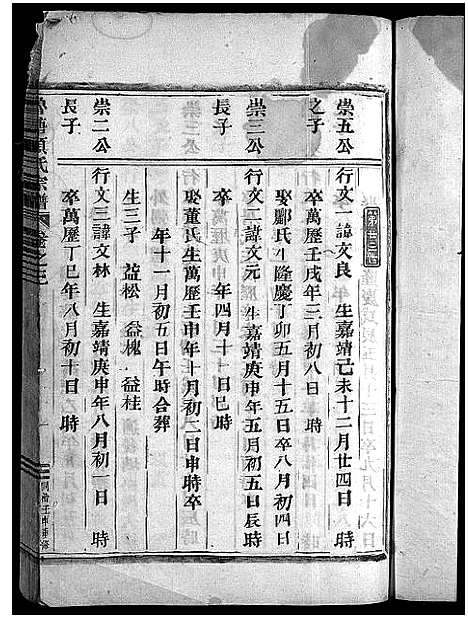 崇五公
之子
行文一諱文良 生嘉靖己未十二月廿四日 時
卒萬歷壬戌年三月初八日 時
娶酈氏生隆慶丁卯五月十五日卒八月初四日
崇三公
長子
行文二諱文元 生嘉靖庚申年五月初五日辰時
卒 年四月十日巳時
娶董氏生萬歷壬申年十月初二日申時卒
年十一月初五日午時合葬
生三子 益松 益槐 益桂
崇二公
長子
行文三諱文林 生嘉靖庚申年八月初一日 時
卒萬歷丁巳年八月初十日 時
氏宗譜
同治壬申重修